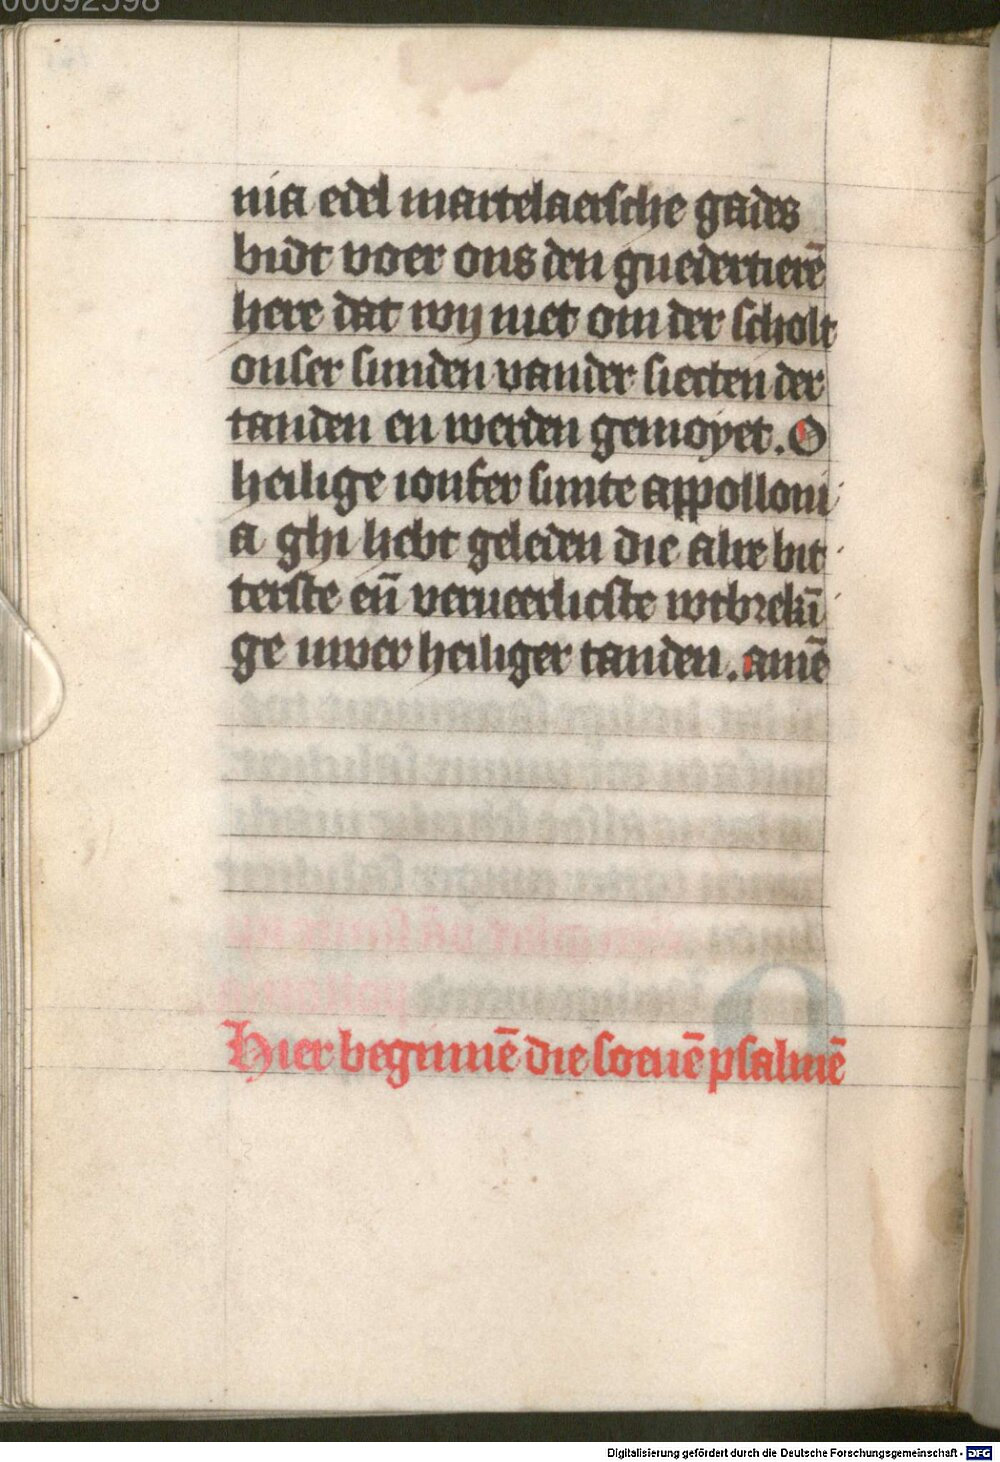 00092598
nia edel martelaersche gades
bidt voer ons den guedertierē
here dat wij niet om der scholt
onser sunden vander siecten der
tanden en werden gemoyet. O
heilige ionfer sunte appolloni
a ghi hebt geleden die alre bit
terste eñ verueerlicste wtbrekī
ge uwer heiliger tanden. amē
Hier beginnē die soeuē psalmē
Digitalisierung gefördert durch die Deutsche Forschungsgemeinschaft - DFG